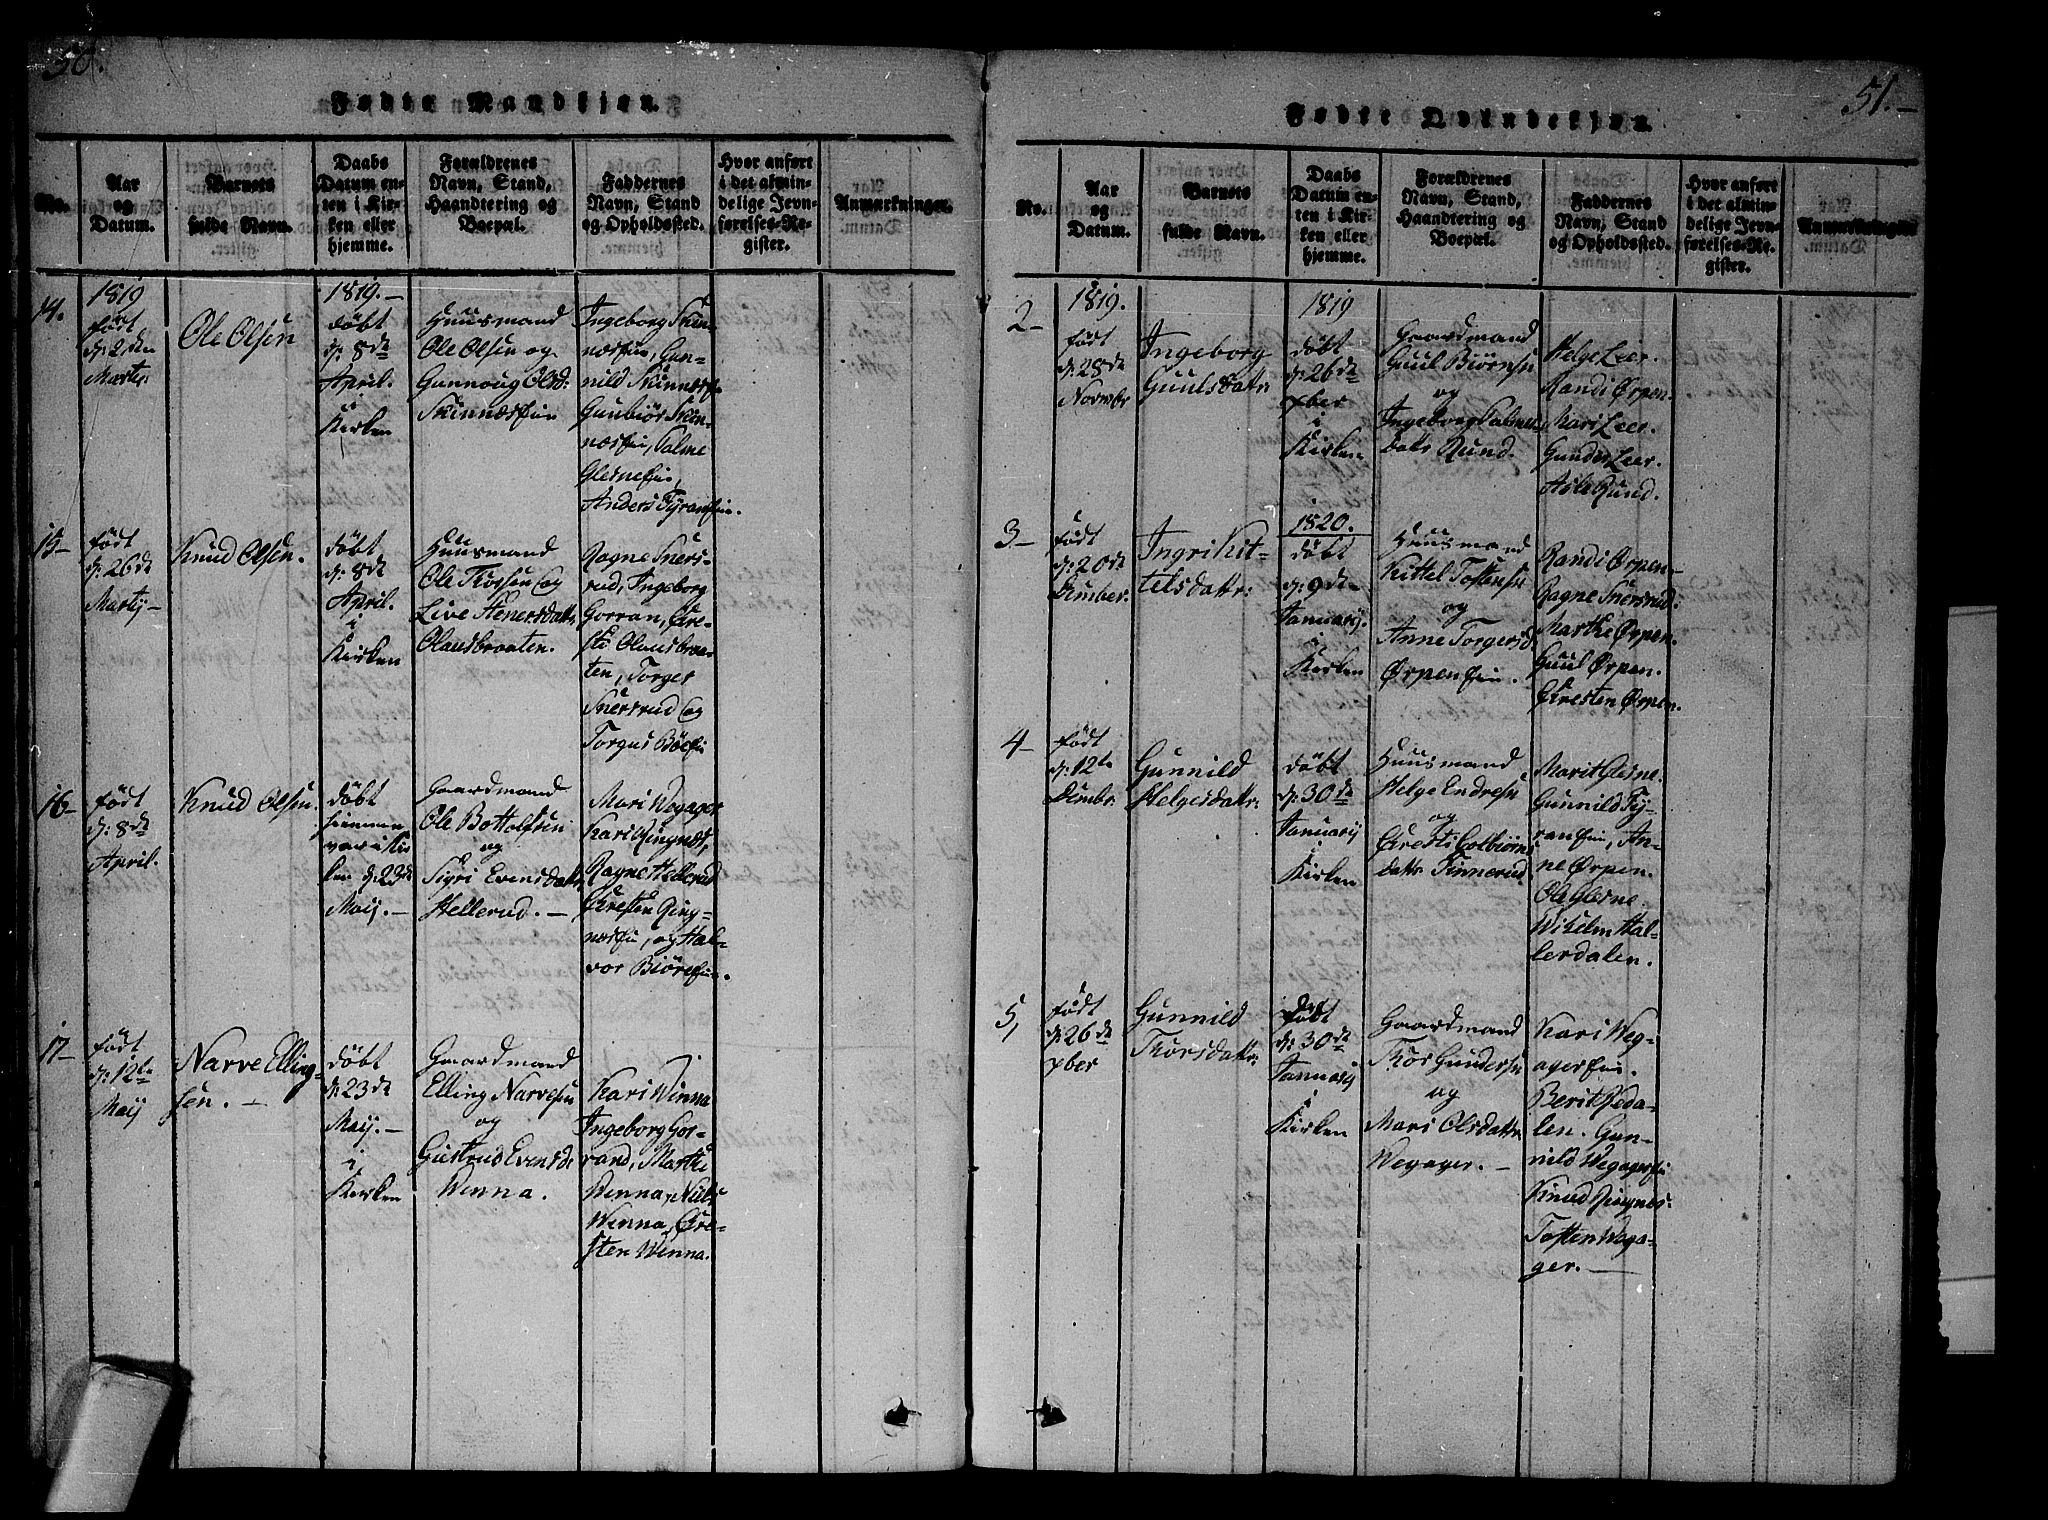 50.
Fødte Mandkjøn.
No.
Aar
og
Datum.
Barnets
fulde Navn.
Daabs
Datum en-
ten i Kir-
ken eller
hjemme.
Forældrenes
Navn, Stand,
Haandtering og
Boepæl.
Faddernes
Navn, Stand
og Opholdssted.
Hvor anført
i det almin-
delige Jevn-
førelses-Re-
gister.
Anmærkninger.
14.
1819
født
d: 2den
Martij.
Ole Olsen
1819.-
døbt
d: 8de
April.
i
Kirken
Huusmand
Ole Olsen og
Gunnoug Olsd:
Skinnæseiu
Ingeborg Skin-
næseiu, Gun-
nild Skinnese
Gunbiør Skin-
næseiu, Palme
Glesneeiu,
Anders Tyraneiu.
15-
født
d: 26de
Martij-
Knud Olsen.
døbt
d: 8de
April.
i
Kirken
Huusmand
Ole Thorsen og
Live Stenersdattr
Olausbraaten.
Ragne Sners-
rud, Ingeborg
Gorran, Chre-
sti Olausbraa-
ten, Torger
Snersrud og
Torgus Böeeiu
16-
født
d: 8de
April.
Knud Olsen.
døbt
hiemme
var i Kir
ken d: 23de
Maij.-
Gaardmand
Ole Bottolfsen
og
Sigri Evensdattr
Hellerud.-
Mari Wegager
Kari Ringnæs,
Ragne Hellerud
Chresten Ring-
næseiu, og Hal-
vor Biöreeiu.
17-
født
d: 12te
Maij
Narve Elling-
sen.-
døbt
d: 23de
Maij.-
i
Kirken
Gaardmand
Elling Narvesen
og
Giertrud Evensd:
Wenna.
Kari Winna
Ingeborg Gor-
rand, Marthe
Wenna, Niels
Wenna, Chre-
sten Winna.
51.-
Fødte Qvindekjøn.
No.
Aar
og
Datum.
Barnets
fulde Navn.
Daabs
Datum en-
ten i Kir-
ken eller
hjemme.
Forældrenes
Navn, Stand,
Haandtering og
Boepæl.
Faddernes
Navn, Stand
og Opholdssted.
Hvor anført
i det almin-
delige Jevn-
førelses-Re-
gister.
Anmærkninger
2-
1819.
født
d: 28de
Novmbr
Ingeborg
Guulsdatr:
1819
døbt
d: 26de
xber
i
Kirken
Gaardmand
Guul Biørnsen
og
Ingeborg Palmes
datr Rund.
Helge Leer.
Randi Ørpen.
Mari Leer.
Gunder Leer.
Asle Rund.
3-
født
d: 20de
Dcmber.
Ingri Kit-
telsdattr:
1820.
døbt
d: 9de
Januarij.
i
Kirken
Huusmand
Kittel Tostensen
og
Anne Torgersd:
Ørpeneiu.
Randi Ørpen-
Ragne Snersrud:
Marthe Ørpen.
Guul Ørpen.
Chresten Ørpen.
4-
født
d: 12te
Dcmbr.
Gunnild
Helgesdattr:
døbt
d: 30de
Januarij
i
Kirken
Huusmand
Helge Endresen
og
Chresti Colbiørns
dattr Finnerud.
Marit Glesne.
Gunnild Ty-
raneiu, An-
ne Ørpen.
Ole Glesne.
Wilhelm Hal-
lerdalen.
5,
født
d: 26de
xber
Gunnild
Thorsdattr:
døbt
d: 30de
Januarij
i
Kirken
Gaardmand
Thor Gundersen
og
Mari Olsdattr
Wegager.-
Kari Weg-
agereiu.
Berit Reda-
len. Gun-
nild Wegagereiu
Knud Ringnes:
Tosten Wega-
ger.-